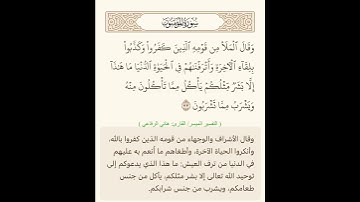 سورة المؤمنون
وَقَالَ ٱلْمَلَأُ مِن قَوْمِهِ ٱلَّذِينَ كَفَرُوا۟ وَكَذَّبُوا۟
بِلِقَآءِ ٱلْـَٔاخِرَةِ وَأَتْرَفْنَـٰهُمْ فِى ٱلْحَيَوٰةِ ٱلدُّنْيَا مَا هَـٰذَآ
إِلَّا بَشَرٌ مِّثْلُكُمْ يَأْكُلُ مِمَّا تَأْكُلُونَ مِنْهُ
وَيَشْرَبُ مِمَّا تَشْرَبُونَ
( التفسير الميسر | القارئ: هاني الرفاعي )
وقال الأشراف والوجهاء من قومه الذين كفروا بالله،
وأنكروا الحياة الآخرة، وأطغاهم ما أنعم به عليهم
في الدنيا من ترف العيش: ما هذا الذي يدعوكم إلى
توحيد الله تعالى إلا بشر مثلكم، يأكل من جنس
طعامكم، ويشرب من جنس شرابكم.